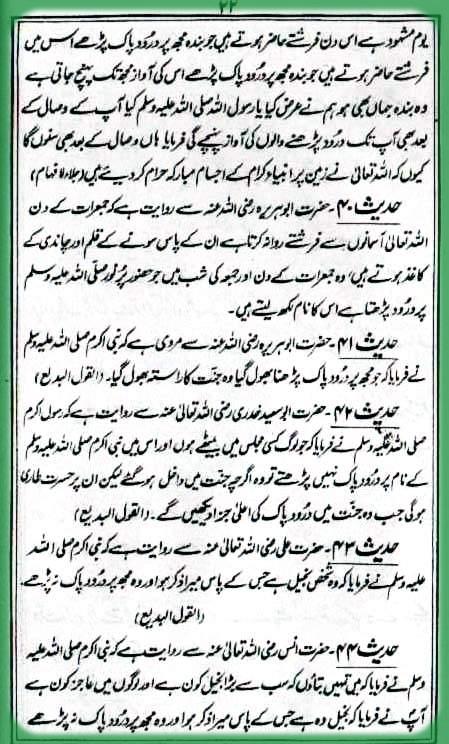 ۲۲
یوم مشہود ہے اس دن فرشتے حاضر ہوتے ہیں جو بندہ مجھ پر درود پاک پڑھے اس میں
فرشتے حاضر ہوتے ہیں، جو بندہ مجھ پر درود پاک پڑھے اس کی آواز مجھ تک پہنچ جاتی ہے
وہ بندہ جہاں بھی ہو ہم نے عرض کیا یا رسول اللہ صلی اللہ علیہ وسلم کیا آپ کے وصال کے
بعد بھی آپ تک درود پڑھنے والوں کی آواز پہنچے گی فرمایا ہاں وصال کے بعد بھی سنوں گا
کیوں کہ اللہ تعالیٰ نے زمین پر انبیاء کرام کے اجسام مبارکہ حرام کر دیئے ہیں (جلاء الافہام)
حدیث ۴۰۔ حضرت ابو ہریرہ رضی اللہ عنہ سے روایت ہے کہ جمعرات کے دن
اللہ تعالیٰ آسمانوں سے فرشتے روانہ کرتا ہے ان کے پاس سونے کے قلم اور چاندی کے
کاغذ ہوتے ہیں، وہ جمعرات کے دن اور جمعہ کی شب میں جو حضور پُرنور صلی اللہ علیہ وسلم
پر درود پڑھتا ہے اس کا نام لکھ لیتے ہیں۔
حدیث ۴۱۔ حضرت ابو ہریرہ رضی اللہ عنہ سے مروی ہے کہ نبی اکرم صلی اللہ علیہ وسلم
نے فرمایا کہ جو مجھ پر درود پاک پڑھنا بھول گیا وہ جنت کا راستہ بھول گیا۔ (القول البدیع)
حدیث ۴۲۔ حضرت ابو سعید خدری رضی اللہ تعالیٰ عنہ سے روایت ہے کہ رسول اکرم
صلی اللہ علیہ وسلم نے فرمایا کہ جو لوگ کسی مجلس میں بیٹھے ہوں اور اس میں نبی اکرم صلی اللہ علیہ وسلم
کے نام پر درود پاک نہیں پڑھتے تو وہ اگرچہ جنت میں داخل ہو گئے لیکن ان پر حسرت طاری
ہو گی جب وہ جنت میں درود پاک کی اعلیٰ جزا دیکھیں گے۔ (القول البدیع)
حدیث ۴۳۔ حضرت علی رضی اللہ تعالیٰ عنہ سے روایت ہے کہ نبی اکرم صلی اللہ
علیہ وسلم نے فرمایا کہ وہ شخص بخیل ہے جس کے پاس میرا ذکر ہو اور وہ مجھ پر درود پاک نہ پڑھے۔
(القول البدیع)
حدیث ۴۴۔ حضرت انس رضی اللہ تعالیٰ عنہ سے روایت ہے کہ نبی اکرم صلی اللہ علیہ
وسلم نے فرمایا کہ میں تمہیں بتاؤں کہ سب سے بڑا بخیل کون ہے اور لوگوں میں عاجز کون ہے
آپ نے فرمایا کہ بخیل وہ ہے جس کے پاس میرا ذکر ہوا اور وہ مجھ پر درود پاک نہ پڑھے